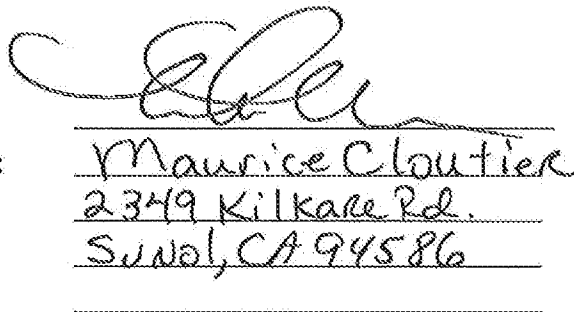 : Maurice Cloutier
2349 Kilkare Rd.
Sunol, CA 94586